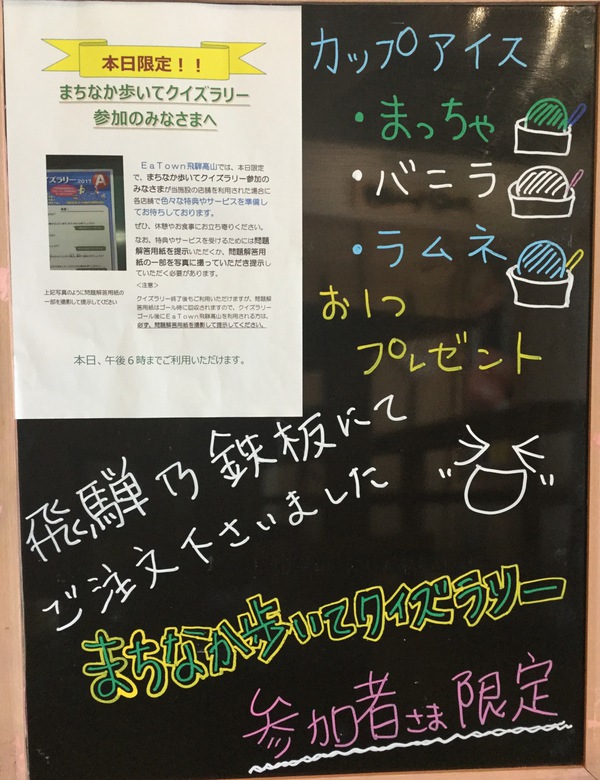 本日限定！！
まちなか歩いてクイズラリー
参加のみなさまへ
EaTown飛騨高山では、本日限定
で、まちなか歩いてクイズラリー参加の
みなさまが当施設の店舗を利用された場合に
各店舗で色々な特典やサービスを準備し
てお待ちしております。
ぜひ、休憩やお食事にお立ち寄りください。
なお、特典やサービスを受けるためには問題
解答用紙を提示いただくか、問題解答用
紙の一部を写真に撮っていただき提示し
ていただく必要があります。
<注意>
クイズラリー終了後もご利用いただけますが、問題
解答用紙はゴール時に回収されますので、クイズラリー
ゴール後にEaTown飛騨高山を利用される方は、
必ず、問題解答用紙を撮影して提示してください。
ズラリー2017
A
上記写真のように問題解答用紙の
一部を撮影して提示してください
本日、午後6時までご利用いただけます。
カップアイス
・まっちゃ
・バニラ
・ラムネ
お1つ
プレゼント
飛騨乃鉄板にて
ご注文下さいました
まちなか歩いてクイズラリー
参加者さま限定